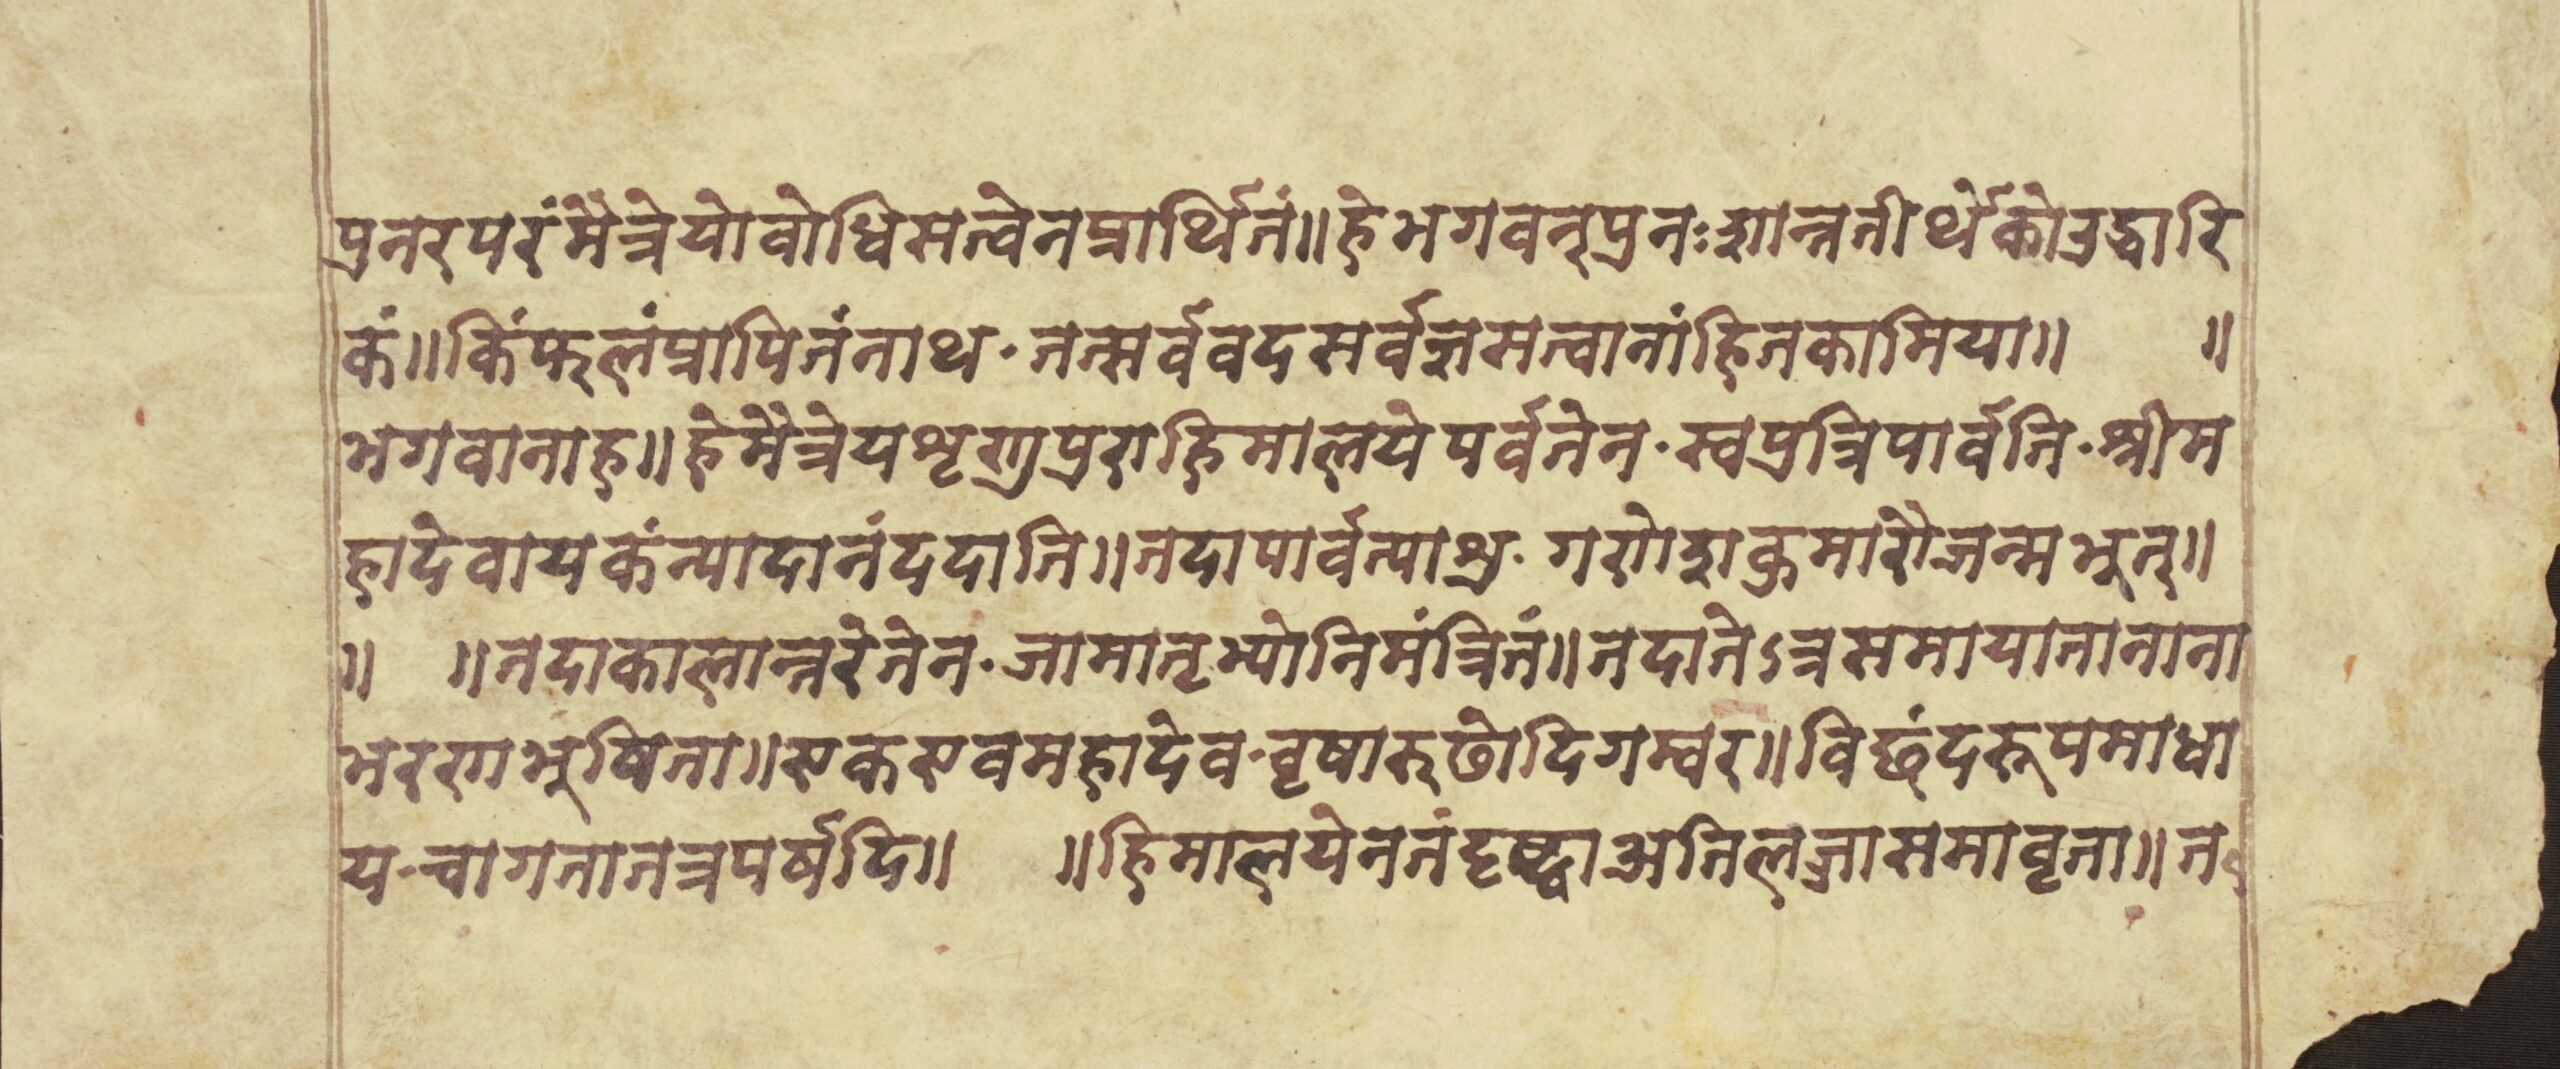 पुनरपरंमैत्रेयोवोधिसत्वेनप्रार्थितं॥हेभगवन्पुनःशान्ततीर्थेकोउद्धारि
कं॥किंफलंप्रापितंनाथ·तत्सर्ववदसर्वज्ञसत्वानांहितकामिया॥ ॥
भगवानाह॥हेमैत्रेयशृणुपुराहिमालयेपर्वतेन·स्वपुत्रिपार्वति·श्रीम
हादेवायकंन्यादानंददाति॥तदापार्वत्याश्र·गणेशकुमारौजन्मभुत्॥
॥ ॥तदाकालान्तरेतेन·जामातृभ्योनिमंत्रितं॥तदातेऽत्रसमायातानाना
भरणभुषिता॥एकएवमहादेव·वृषारुढोदिगम्वर॥विछंदरूपमाधा
य·चागतातत्रपर्षदि॥ ॥हिमालयेनतंदृष्ट्वाअतिलज्जासमावृता॥त